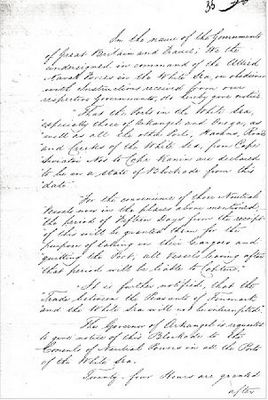 35
In the name of the Governments
of Great Britain and France, We the
undersigned in command of the Allied
Naval Forces in the White Sea, in obedience
with Instructions received from our
respective Governments, do hereby give notice
That the Ports in the White Sea,
especially those of Arkangel and Onega, as
well as all the other Ports, Harbors, Roads
and Creeks of the White Sea, from Cape
Nos to Cape Kanin are declared
to be in a state of Blockade from this
date
For the convenience of those Neutral
Vessels now in the places above mentioned,
the period of Fifteen Days from the receipt
of this will be granted them for the
purpose of taking in their Cargoes and
quitting the Port, all Vessels leaving after
that period will be liable to Capture.
It is further notified, that the
Trade between the Peasants of
and the White Sea will not be interrupted.
The Governor of Arkangel is requested
to give notice of this Blockade to the
Consuls of Neutral Powers in all the Ports
of the White Sea.
Twenty-four Hours are granted
after